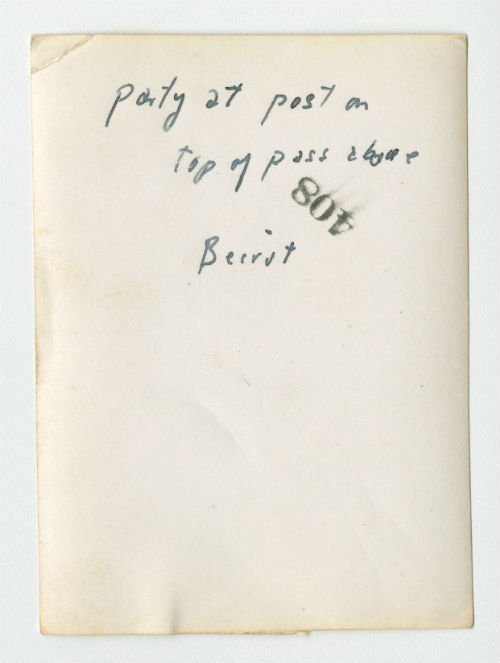 Party at post on
top of pass above
408
Beirut